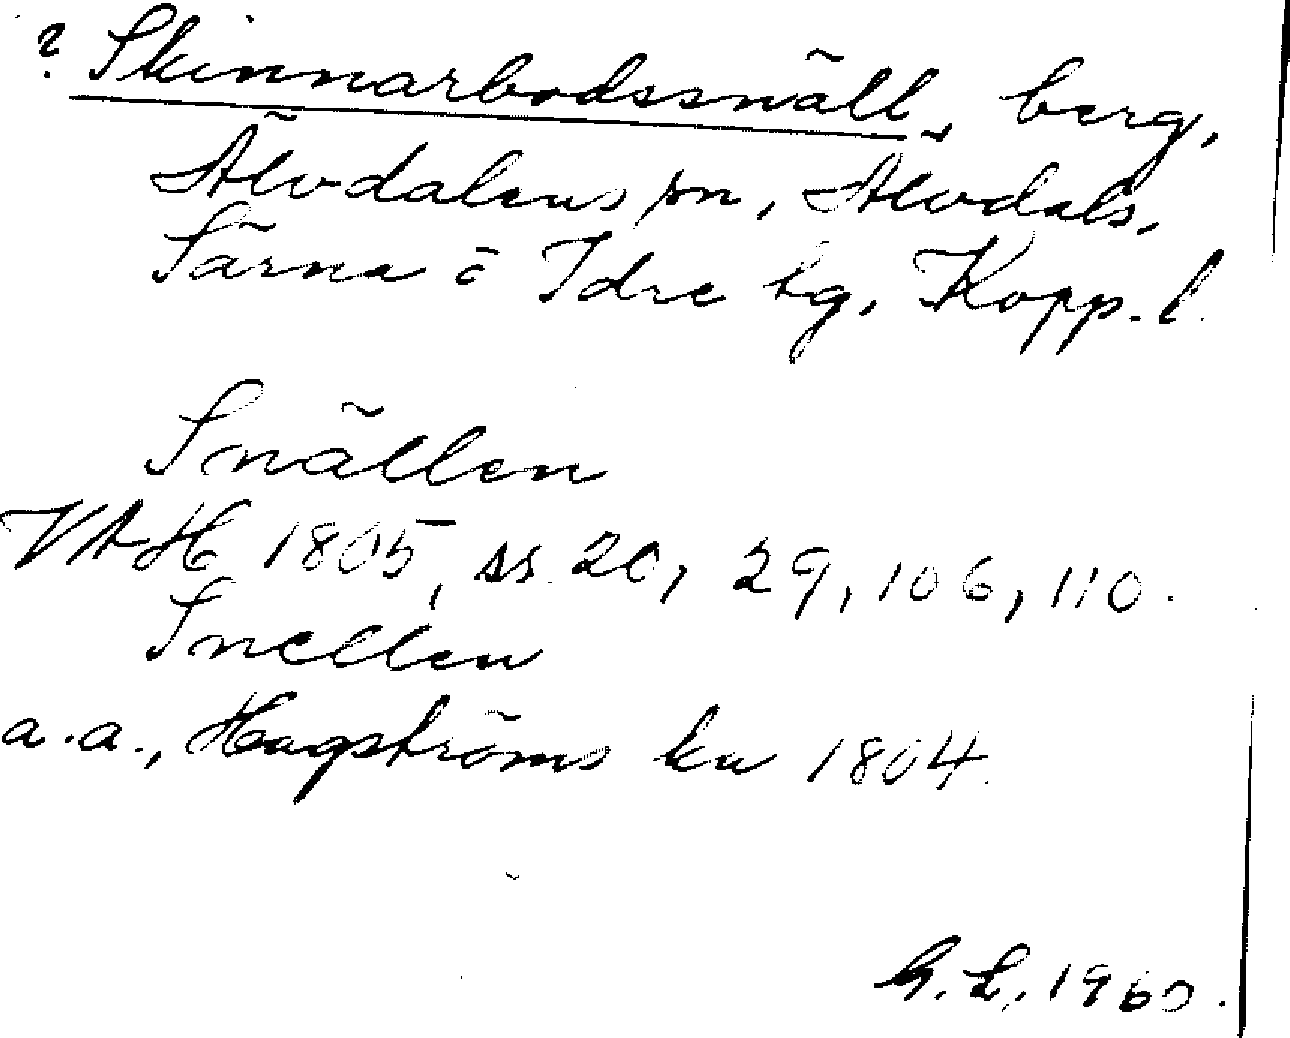 ? Skinnarbodssnäll, berg,
Älvdalens sn, Älvdals,
Särna o Idre tg, Kopp. l.
Snällen
VAH 1805, ss. 20, 29, 106, 110.
Snellen
a.a., Hagströms ka 1804.
G. L. 1960.